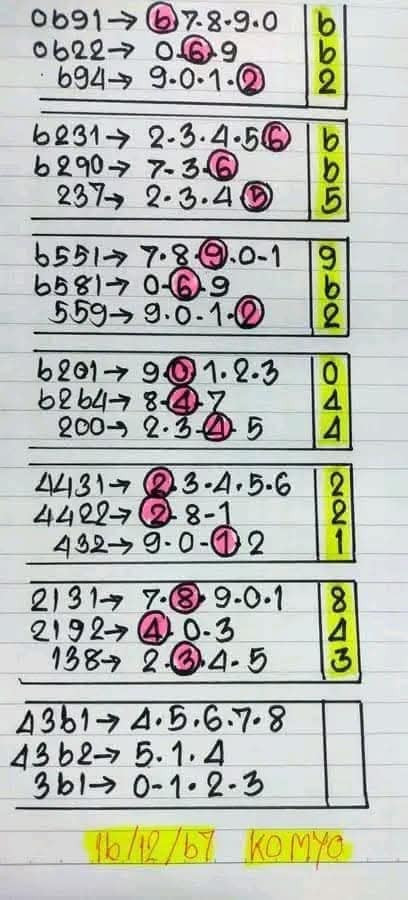 0691→ 6 7·8·9·0 6
0622→ 0·6·9 6
694→ 9·0·1·2 2
6231→ 2·3·4·5 6 6
6290→ 7-3·6 6
237→ 2·3·4 5 5
6551→ 7·8·9·0-1 9
6581→ 0·6·9 6
559→ 9·0·1·2 2
6201→ 9·0·1·2·3 0
6264→ 8·4·7 4
200→ 2·3·4·5 4
4431→ 2·3·4·5·6 2
4422→ 2·8-1 2
432→ 9·0-1·2 1
2131→ 7·8·9·0·1 8
2192→ 4·0·3 4
138→ 2·3·4·5 3
4361→ 4·5·6·7·8
4362→ 5·1·4
361→ 0-1·2·3
16/12/67 KOMYO